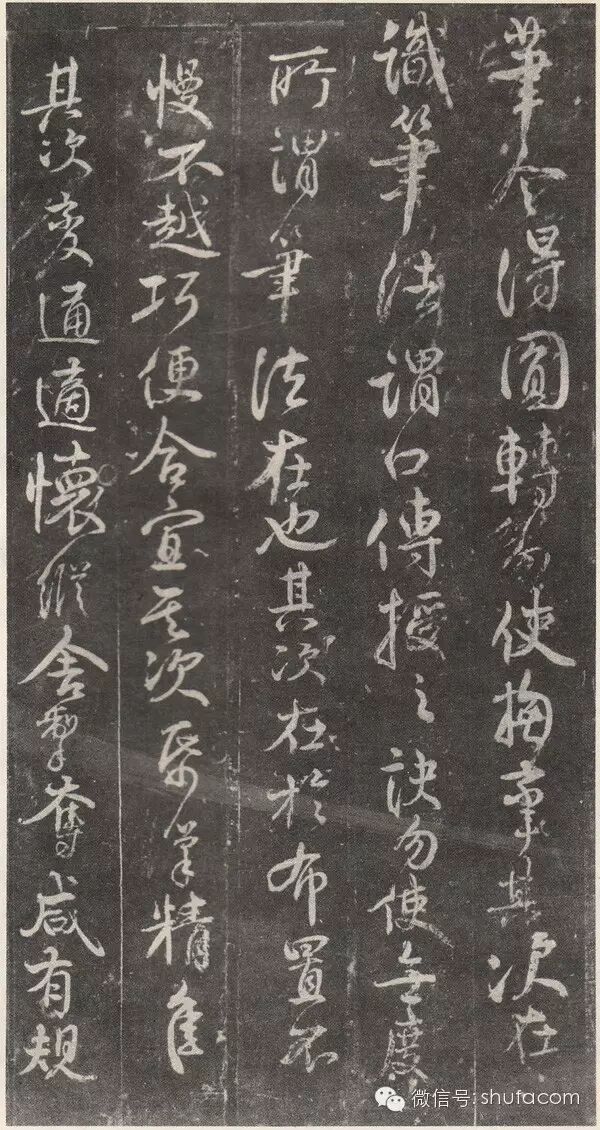 筆令得圓轉勿使拘攣其次在
識筆法謂口傳授之訣勿使無度
所謂筆法在也其次在於布置不
慢不越巧便合宜其次紙筆精佳
其次變通適懷縱舍掣奪咸有規
微信号: shufacom